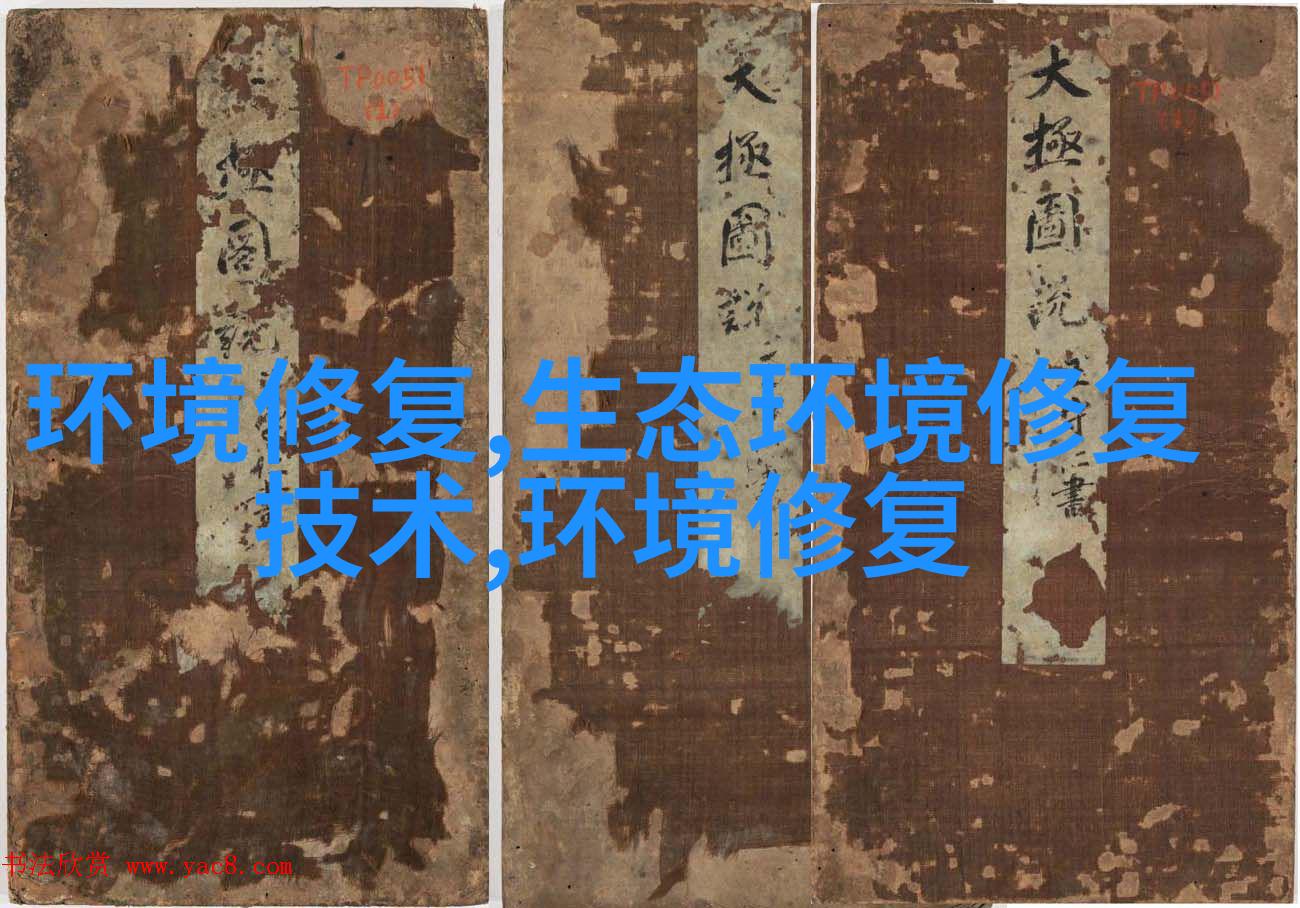 TP0051
(1)
極
圖
說
大
極
圖
說
大
極
圖
说
書
环境修复,生态环境修复
技术,环境修复
书法欣赏 www.yac8.com